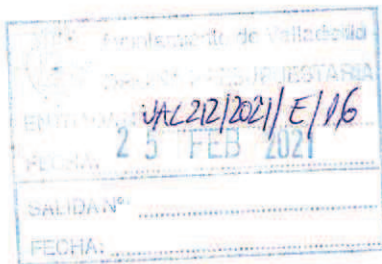 Ayuntamiento de Valladolid
VAL212/2021/E/16
FECHA: 25 FEB 2021
SALIDA Nº
FECHA: